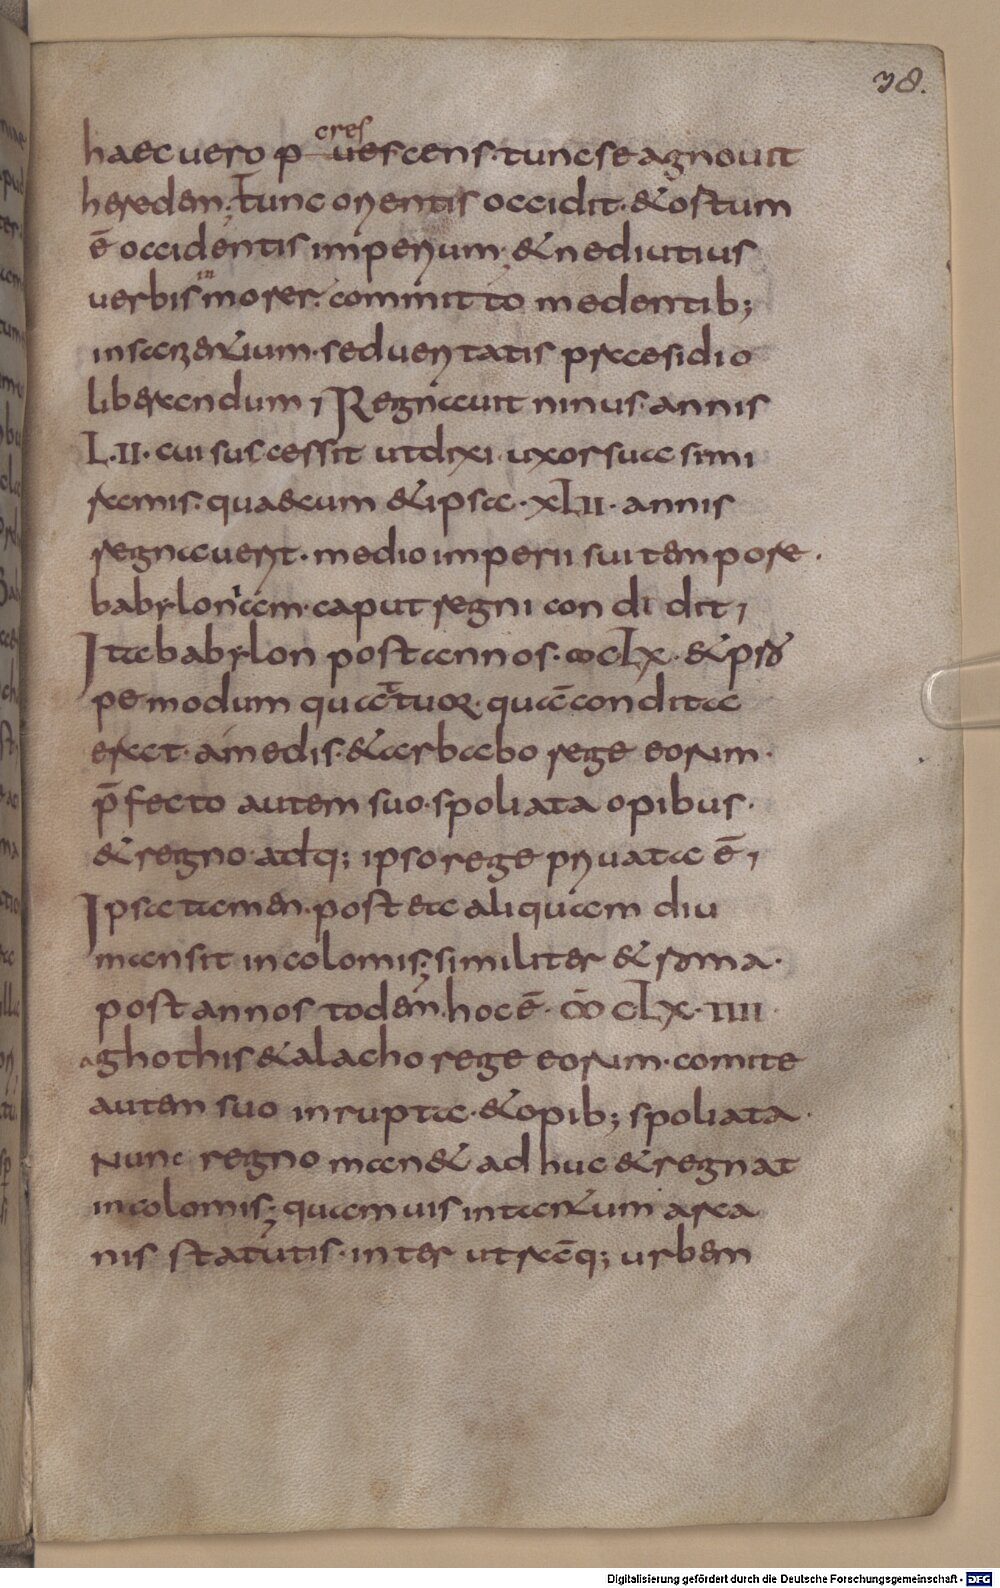 38.
cres
haec uero p uescens· tunc se agnouit
heredem; Tunc orientis occidit· & ostum
ē occidentis imperium· & ne diutius
uerbis in morer· committo me dentib;
in saczerium· sed ueritatis praesidio
liberandum; Regnauit ninus· annis
L·II· cui suscessit ut dixi uxor sua simi
ramis· quae cum & ipsa· XLII· annis
regnauerit· medio imperii sui tempore·
babyloniam· caput regni condidit;
Ita babylon post annos· ∞CLX· & pro
pe modum quattuor· quā condita
erat· a medis· & arbabo rege eorum·
p̄fecto autem suo· spoliata opibus·
& regno· adq; ipso rege priuata ē;
Ipsa tamen· post ea aliquam diu
mansit incolomis; similiter & roma·
post annos todem hoc ē· ∞CLX·IIII
a ghothis & alacho rege eorum· comite
autem suo inrupta· & opib; spoliata·
Nunc regno manet adhuc & regnat
incolomis; quamuis in tantum arca
nis statutis· inter utramq; urbem
Digitalisierung gefördert durch die Deutsche Forschungsgemeinschaft - DFG